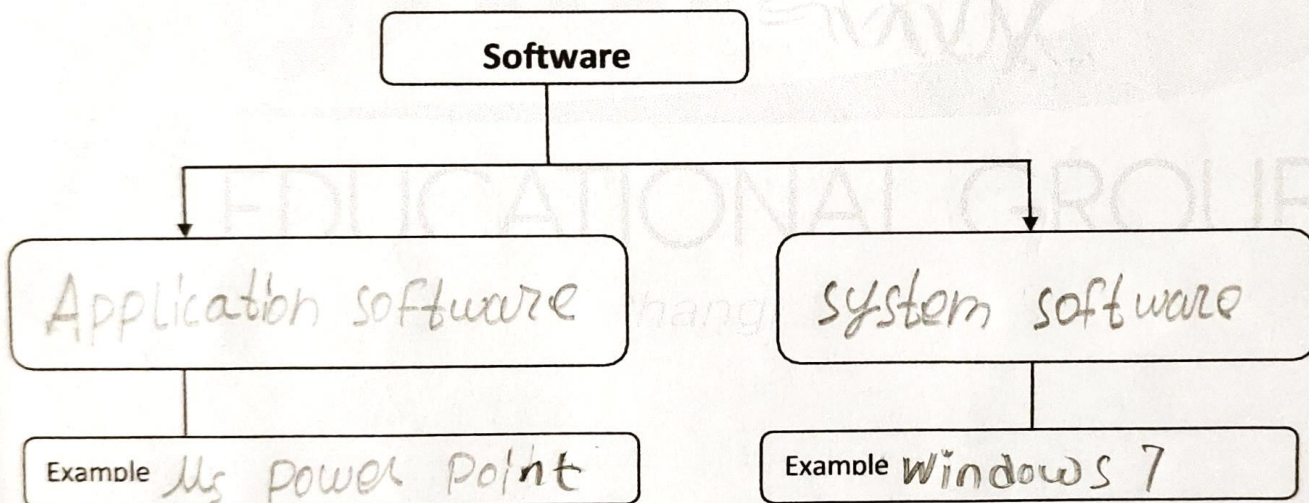 Software
EDUCATIONAL GROUP
Application software
system software
hang
Example Ms power point
Example Windows 7